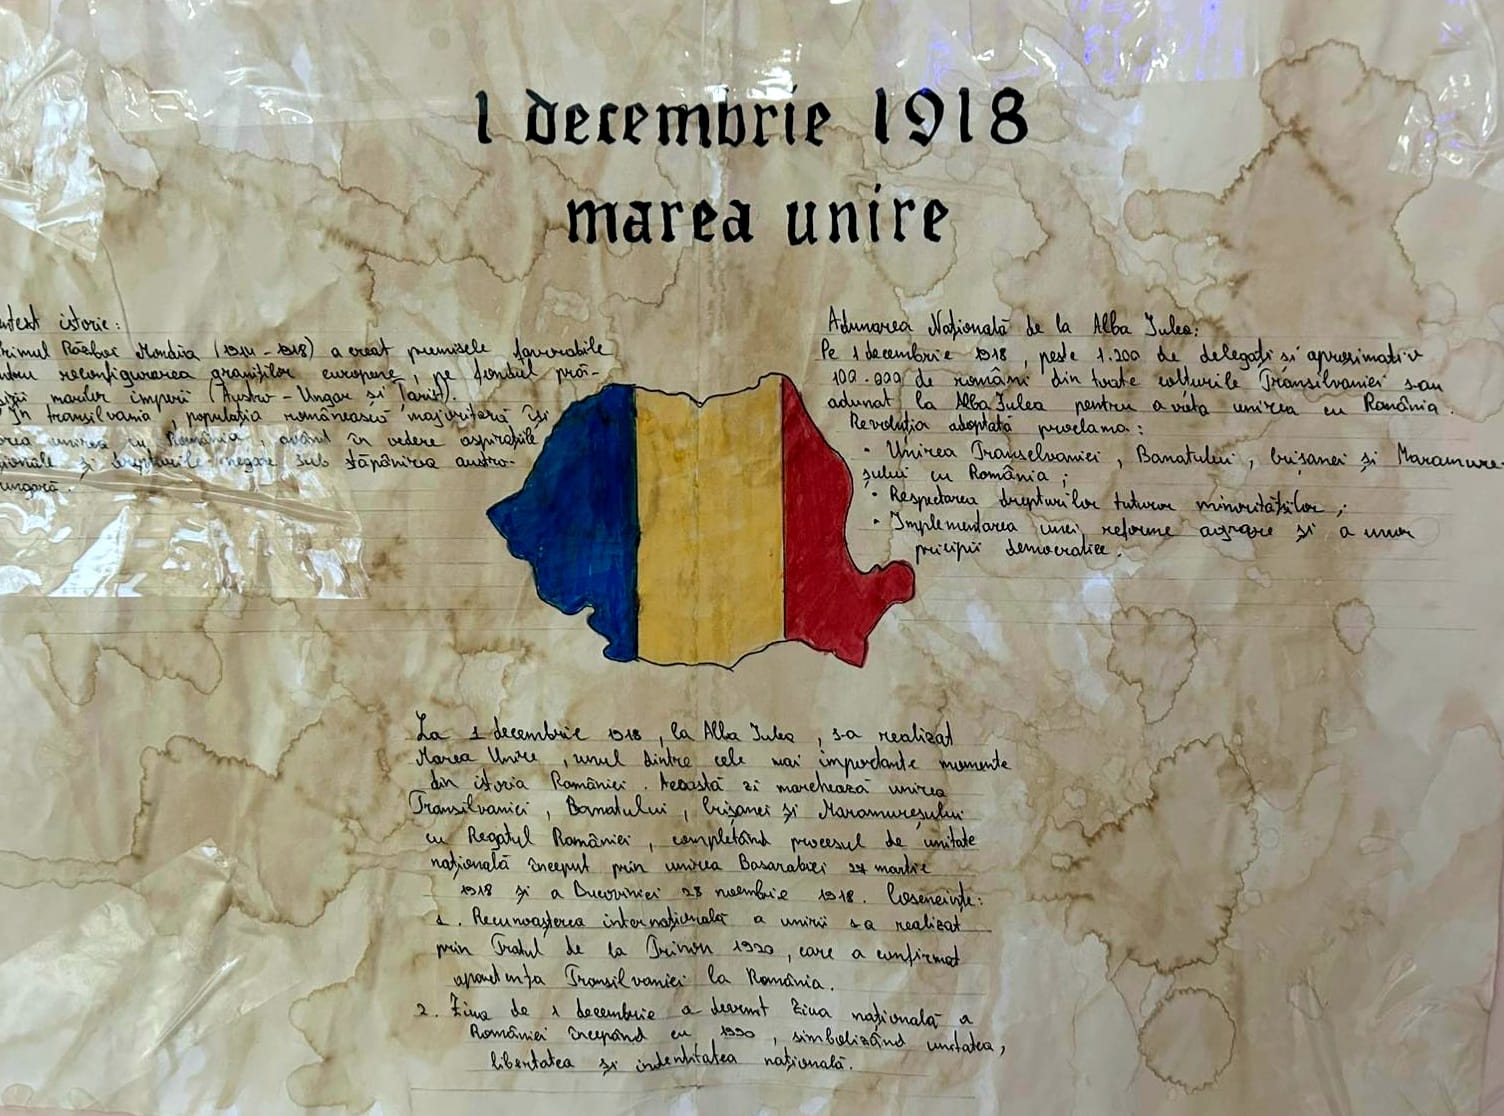 1 decembrie 1918
marea unire
ntext istoric:
rimul Război Mondia (1914-1918) a creat premisele favorabile
ntru reconfigurarea granițelor europene, pe fondul pră-
marilor imperii (Austro-Ungar și Țarist).
În transilvania, populația românească majoritară își
orea unirea cu România, având în vedere aspirațiile
ionale și drepturile negate sub stăpânirea austro-
ungară.
Adunarea Națională de la Alba Iulia:
Pe 1 decembrie 1918, peste 1.200 de delegați si aproximativ
100.000 de români din toate colturile Transilvaniei s-au
adunat la Alba Iulia pentru a vota unirea cu România.
Revoluția adoptată proclama:
• Unirea Transelvaniei, Banatului, Crișanei și Maramure-
șului cu România;
• Respectarea drepturilor tuturor minoritățiilor;
• Implementarea unei reforme agrare și a unor
pricipii democratice.
La 1 decembrie 1918, la Alba Iulia, s-a realizat
Marea Unire, unul dintre cele mai importante momente
din istoria României. Această zi marchează unirea
Transilvaniei, Banatului, Crișanei și Maramureșului
cu Regatul României, completând procesul de unitate
națională început prin unirea Basarabiei 27 martie
1918 și a Bucovinei 28 noembrie 1918. Coseneințe:
1. Recunoașterea internațională a unirii s-a realizat
prin Tratul de la Trinon 1920, care a confirmat
Transilvaniei la România.
2. Ziua de 1 decembrie a devenit Ziua națională a
României începând cu 1990, simbolizând unitatea,
libertatea și indentitatea națională.